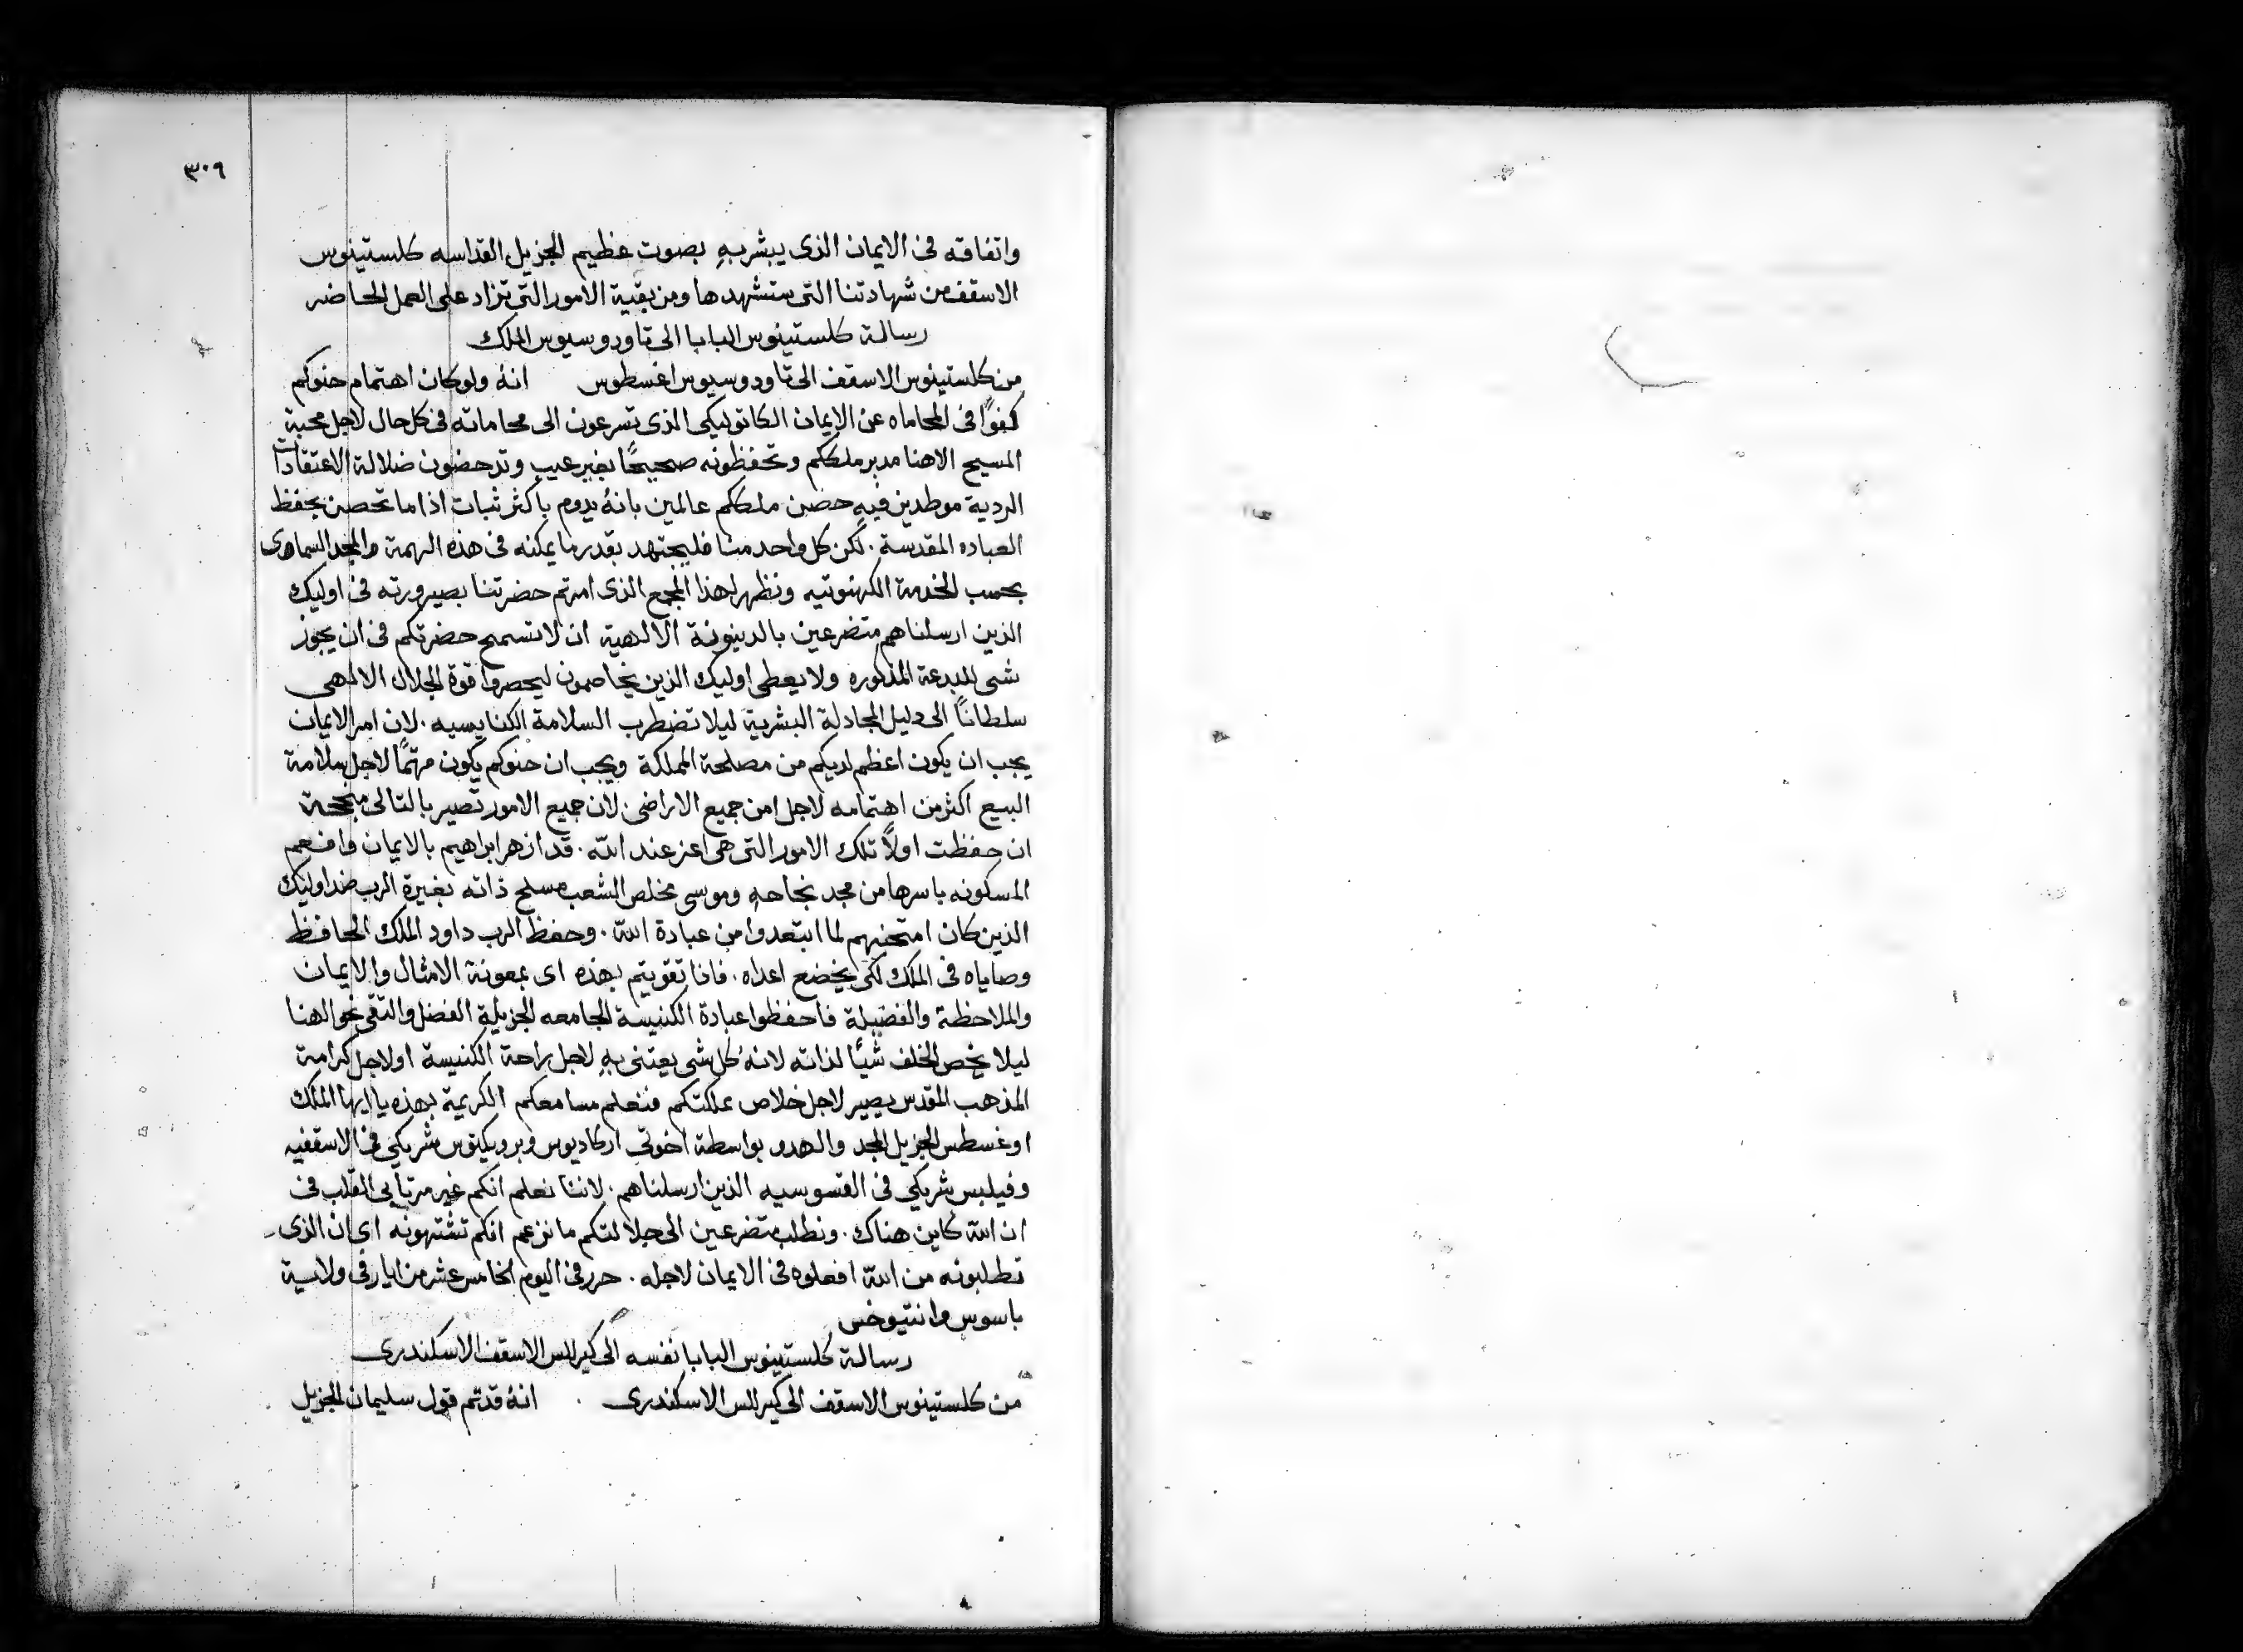 ٣٠٩
واتفاقه فى الايمان الذى يبشر بهِ بصوت عظيم الجزيل القداسه كلستينوس
الاسقف من شهادتنا التى ستشهدها ومن بقية الامور التى تزاد على العمل الحاضر
رسالة كلستينوس البابا الى تاودوسيوس الملك
من كلستينوس الاسقف الى تاودوسيوس اغسطوس انهُ ولو كان اهتمام حنوكم
كفوًا فى المحاماه عن الايمان الكاتوليكى الذى تسرعون الى محاماته فى كل حال لاجل محبة
المسيح الاهنا مدبر ملككم وتحفظونه صحيحًا بغير عيب وتدحضون ضلالة الاعتقادات
الردية موطدين فيهِ حضن ملككم عالمين بانهُ يدوم باكثر ثبات اذا ما تحصن بحفظ
العباده المقدسة. لكن كل واحد منا فليجتهد بقدر ما يمكنه فى هذه الهمة والمجد السماوى
بحسب الخدمة الكهنوتيه ونظهر لهذا المجمع الذى امرتم حضرتنا بصيرورته فى اوليك
الذين ارسلناهم متضرعين بالدينونة الالهية ان لا تسمح حضرتكم فى ان يجوز
شى للبدعة المذكوره ولا يعطى اوليك الذين يخاصمون ليحصروا قوة الجلال الالهى
سلطانًا الى دليل المجادلة البشرية ليلا تضطرب السلامة الكنايسيه. لان امر الايمان
يجب ان يكون اعظم لديكم من مصلحة المملكة ويجب ان حنوكم يكون مهتمًا لاجل سلامة
البيع اكثر من اهتمامه لاجل امن جميع الاراضى. لان جميع الامور تصير بالتالى منجحة
ان حفظت اولًا تلك الامور التى هى اعز عند الله. قد ازهر ابراهيم بالايمان وافعم
المسكونه باسرها من مجد نجاحهِ وموسى مخلص الشعب مسلح ذاته بغيرة الرب ضد اوليك
الذين كان امتحنهم لما ابتعدوا من عبادة الله. وحفظ الرب داود الملك الحافظ
وصاياه فى الملك لكى يخضع اعداه. فاذا تقويتم بهذه اى بمعونة الامثال والايمان
والملاحظة والفضيلة فاحفظوا عبادة الكنيسة الجامعه الجزيلة الفضل والتقى نحو الهنا
ليلا يخص الخلف شيًا لذاته لانهُ كل شى يعتنى بهِ لاجل راحة الكنيسة او لاجل كرامة
المذهب المقدس يصير لاجل خلاص مملكتكم فنعلم مسامعكم الكريمة بهذه يا ايها الملك
اوغسطس الجزيل المجد والهدو بواسطة اخوتى اركاديوس وبرويكيتوس شريكى فى الاسقفيه
وفيلبس شريكى فى القسوسيه الذين ارسلناهم. لاننا نعلم انكم غير مرتابى القلب فى
ان الله كاين هناك. ونطلب متضرعين الى جلالتكم ما نزعم انكم تشتهونه اى ان الذى
تطلبونه من الله افعلوه فى الايمان لاجله. حرر فى اليوم الخامس عشر من ايار فى ولاية
باسوس وانتيوخس
رسالة كلستينوس البابا نفسه الى كيرللس الاسقف الاسكندرى
من كلستينوس الاسقف الى كيرللس الاسكندرى انهُ قد تم قول سليمان الجزيل